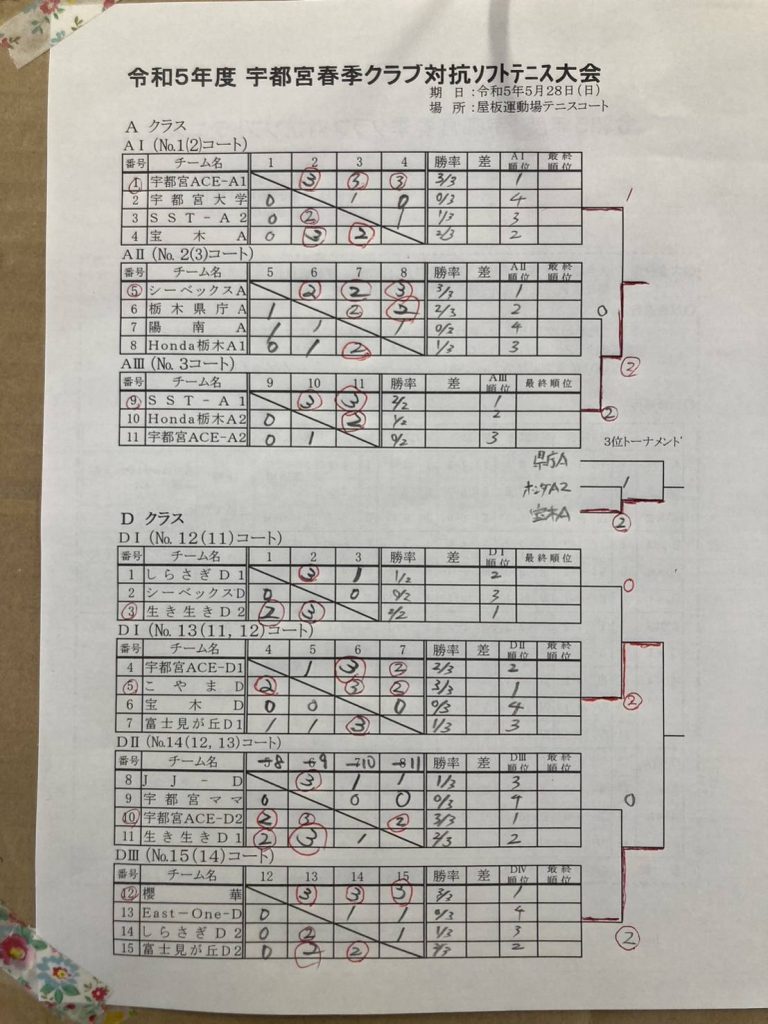 令和5年度 宇都宮春季クラブ対抗ソフトテニス大会
期 日 :令和5年5月28日(日)
場 所 :屋板運動場テニスコート
A クラス
AⅠ(No.1(2)コート)
番号 チーム名 1 2 3 4 勝率 差 AⅠ順位 最終順位
1 宇都宮ACE-A1 3 3 3 3/3 1
2 宇都宮大学 0 1 0 0/3 4
3 SST-A2 0 2 1 1/3 3
4 宝木A 0 3 2 2/3 2
1
AⅡ(No. 2(3)コート)
番号 チーム名 5 6 7 8 勝率 差 AⅡ順位 最終順位
5 シーベックスA 2 2 3 3/3 1
6 栃木県庁A 1 2 2 2/3 2
0
7 陽南A 1 1 1 0/3 4
8 Honda栃木A1 0 1 2 1/3 3
2
AⅢ(No. 3コート)
番号 チーム名 9 10 11 勝率 差 AⅢ順位 最終順位
9 SST-A1 3 3 2/2 1
10 Honda栃木A2 0 2 1/2 2
2
11 宇都宮ACE-A2 0 1 0/2 3
3位トーナメント
県庁A
ホンダA2 1
宝木A
2
D クラス
DⅠ(No. 12(11)コート)
番号 チーム名 1 2 3 勝率 差 DⅠ順位 最終順位
1 しらさぎD1 3 1 1/2 2
0
2 シーベックスD 0 0 0/2 3
3 生き生きD2 2 3 2/2 1
DⅠ(No. 13(11, 12)コート)
番号 チーム名 4 5 6 7 勝率 差 DⅡ順位 最終順位
4 宇都宮ACE-D1 1 3 2 2/3 2
5 こやまD 2 3 2 3/3 1
2
6 宝木D 0 0 0 0/3 4
7 富士見が丘D1 1 1 3 1/3 3
DⅡ(No.14(12, 13)コート)
番号 チーム名 8 9 10 11 勝率 差 DⅢ順位 最終順位
8 JJ-D 3 1 1 1/3 3
9 宇都宮ママ 0 0 0 0/3 4
0
10 宇都宮ACE-D2 2 3 2 3/3 1
11 生き生きD1 2 3 1 2/3 2
DⅢ(No.15(14)コート)
番号 チーム名 12 13 14 15 勝率 差 DⅣ順位 最終順位
12 櫻華 3 3 3 3/3 1
13 East-One-D 0 1 1 0/3 4
14 しらさぎD2 0 2 1 1/3 3
2
15 富士見が丘D2 0 2 2 2/3 2